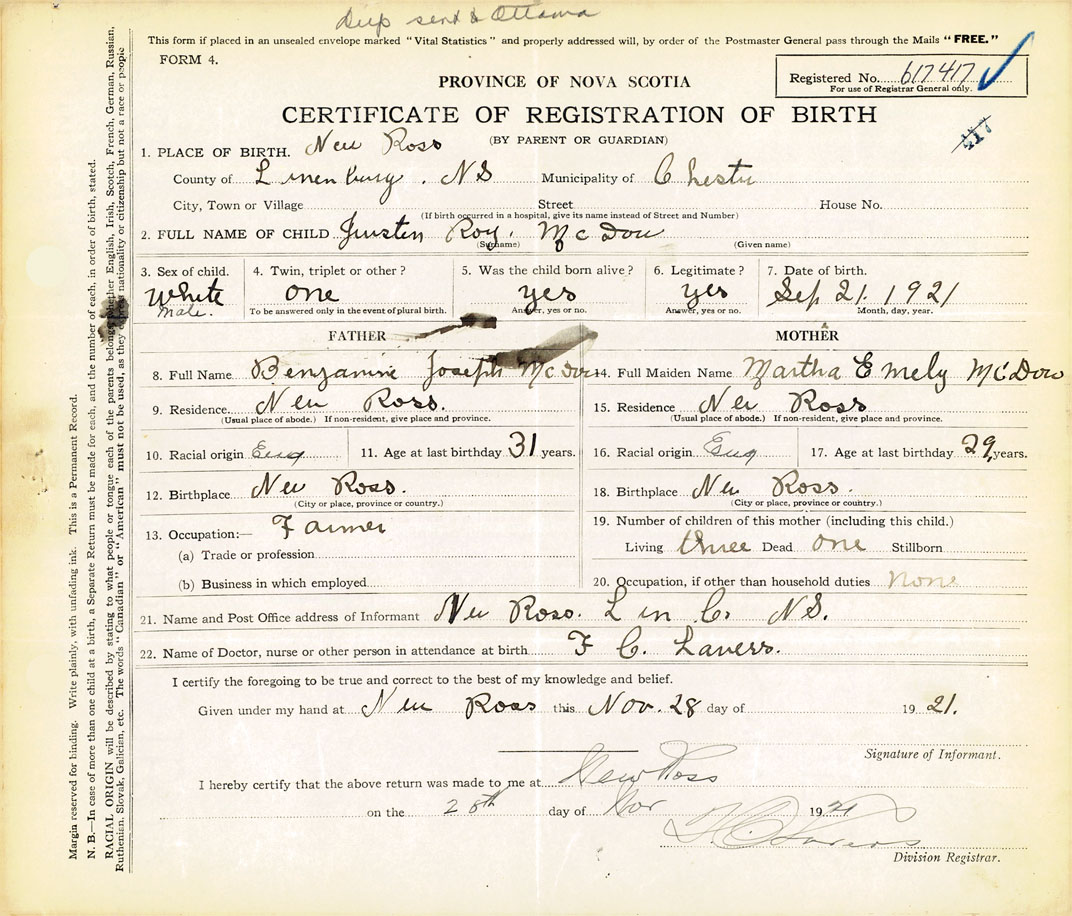 Dup sent to Ottawa
This form if placed in an unsealed envelope marked "Vital Statistics" and properly addressed will, by order of the Postmaster General pass through the Mails "FREE."
FORM 4.
Registered No. 617417
For use of Registrar General only.
PROVINCE OF NOVA SCOTIA
CERTIFICATE OF REGISTRATION OF BIRTH
(BY PARENT OR GUARDIAN)
1. PLACE OF BIRTH. New Ross
County of Lunenburg. NS Municipality of Chester
City, Town or Village Street House No.
(If birth occurred in a hospital, give its name instead of Street and Number)
2. FULL NAME OF CHILD Roy. McDow
(Surname) (Given name)
3. Sex of child. 4. Twin, triplet or other? 5. Was the child born alive? 6. Legitimate? 7. Date of birth.
White one yes yes Sep 21. 1921
male. To be answered only in the event of plural birth. Answer, yes or no. Answer, yes or no. Month, day, year.
FATHER MOTHER
8. Full Name Joseph McDow 14. Full Maiden Name Martha Emely McDow
9. Residence New Ross. 15. Residence New Ross
(Usual place of abode.) If non-resident, give place and province. (Usual place of abode.) If non-resident, give place and province.
10. Racial origin Eng 11. Age at last birthday 31 years. 16. Racial origin Eng 17. Age at last birthday 29 years.
12. Birthplace New Ross. 18. Birthplace New Ross.
(City or place, province or country.) (City or place, province or country.)
13. Occupation:— Farmer 19. Number of children of this mother (including this child.)
(a) Trade or profession Living three Dead one Stillborn
(b) Business in which employed 20. Occupation, if other than household duties none
21. Name and Post Office address of Informant New Ross. Lun Co. NS.
22. Name of Doctor, nurse or other person in attendance at birth F C. Lavers.
I certify the foregoing to be true and correct to the best of my knowledge and belief.
Given under my hand at New Ross this Nov. 28 day of 1921.
Signature of Informant.
I hereby certify that the above return was made to me at New Ross
on the 28th day of Nov 1921
Lavers
Division Registrar.
Margin reserved for binding. Write plainly, with unfading ink. This is a Permanent Record.
N. B.—In case of more than one child at a birth, a Separate Return must be made for each, and the number of each, in order of birth, stated.
RACIAL ORIGIN will be described by stating to what people or tongue each of the parents belongs, whether English, Irish, Scotch, French, German, Russian,
Ruthenian, Slovak, Galician, etc. The words "Canadian" or "American" must not be used, as they express nationality or citizenship but not a race or people